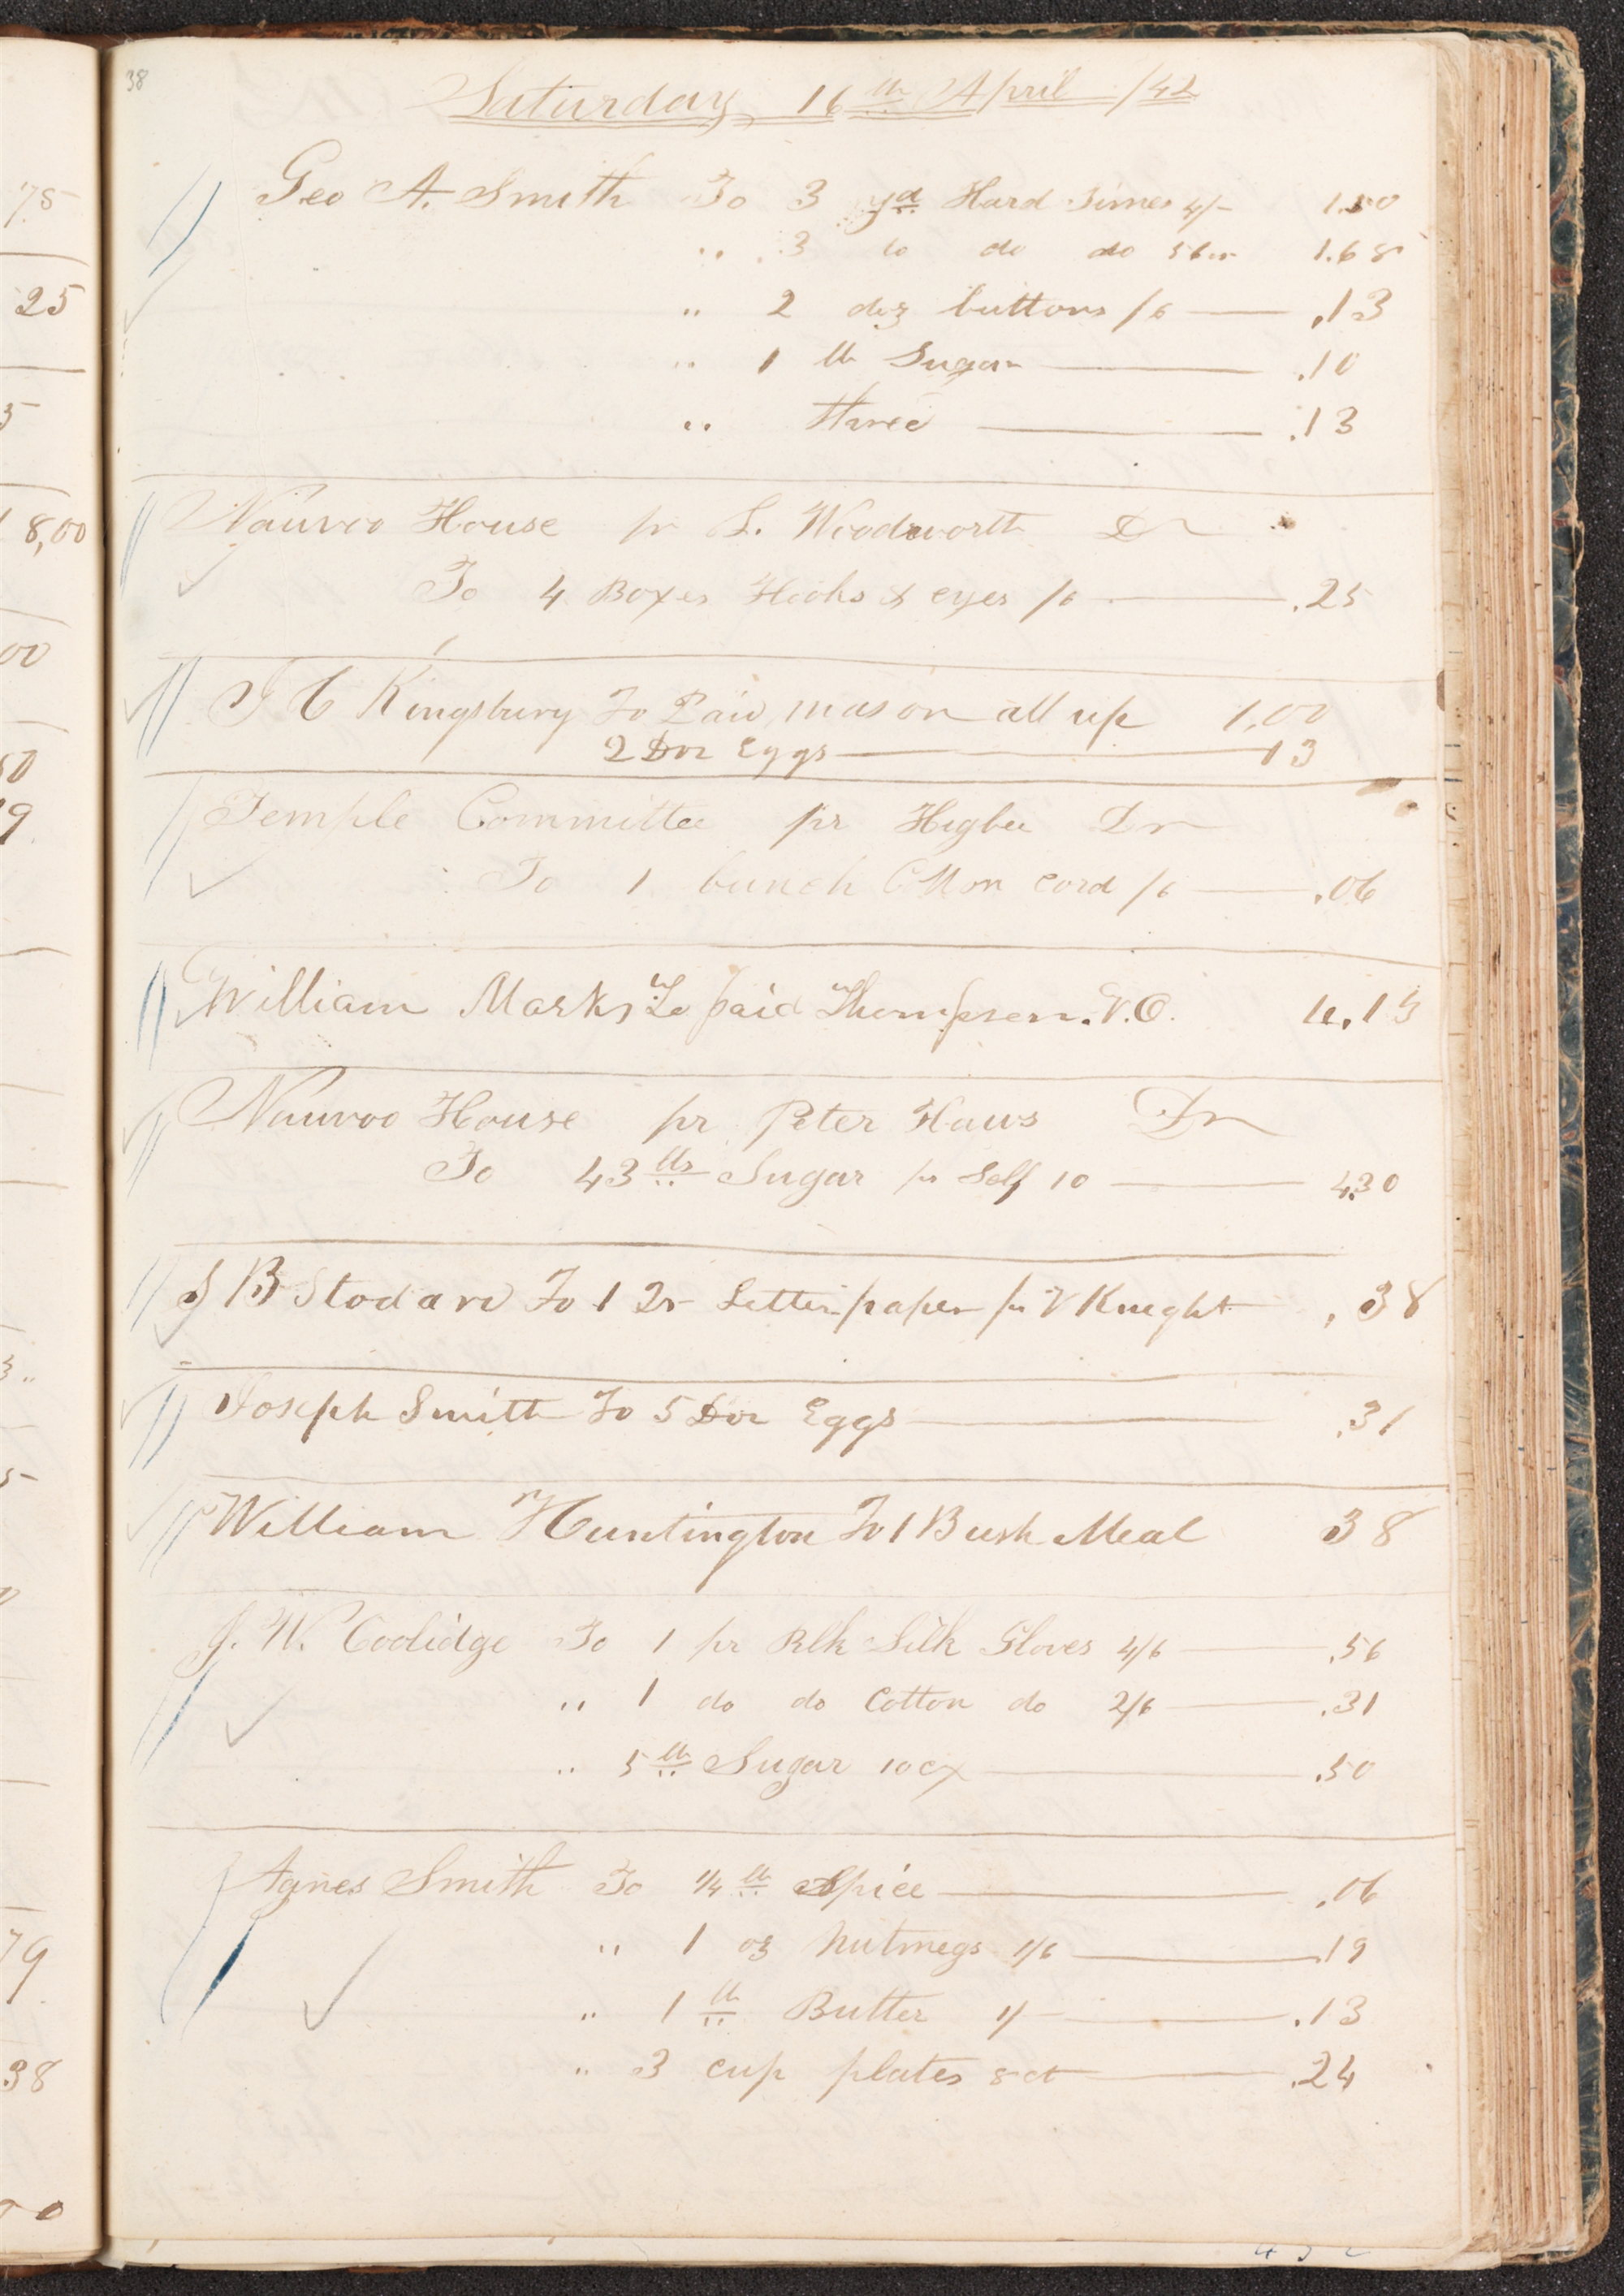 38
Saturday, 16th April /42
Geo A. Smith To 3 yd Hard Times 4/- 1.50
" 3 do do do 56cts 1.68
" 2 doz buttons /6 .13
" 1 lb Sugar .10
" three .13
Nauvoo House pr L. Woodworth Dr
To 4 Boxes Hooks & eyes /6 .25
J C Kingsbury To Paid mason all up 1,00
2 Doz Eggs 13
Temple Committee pr Higbee Dr
To 1 bunch Cotton Cord /6 .06
William Marks To paid Thompson. V.O. 4.13
Nauvoo House pr Peter Haws Dr
To 43 lbs Sugar pr Self 10 4.30
J B Stodard To 1 Qr Letter paper pr V Knight .38
Joseph Smith To 5 Doz Eggs .31
William Huntington To 1 Bush Meal 38
J. W. Coolidge To 1 pr Blk Silk Gloves 4/6 .56
" 1 do do Cotton do 2/6 .31
" 5 lb Sugar 10cts .50
Agnes Smith To 1/4 lb Spice .06
" 1 oz Nutmegs 1/6 .19
" 1 lb Butter 1/- .13
" 3 cup plates 8ct .24
75
25
8,00
00
79
38